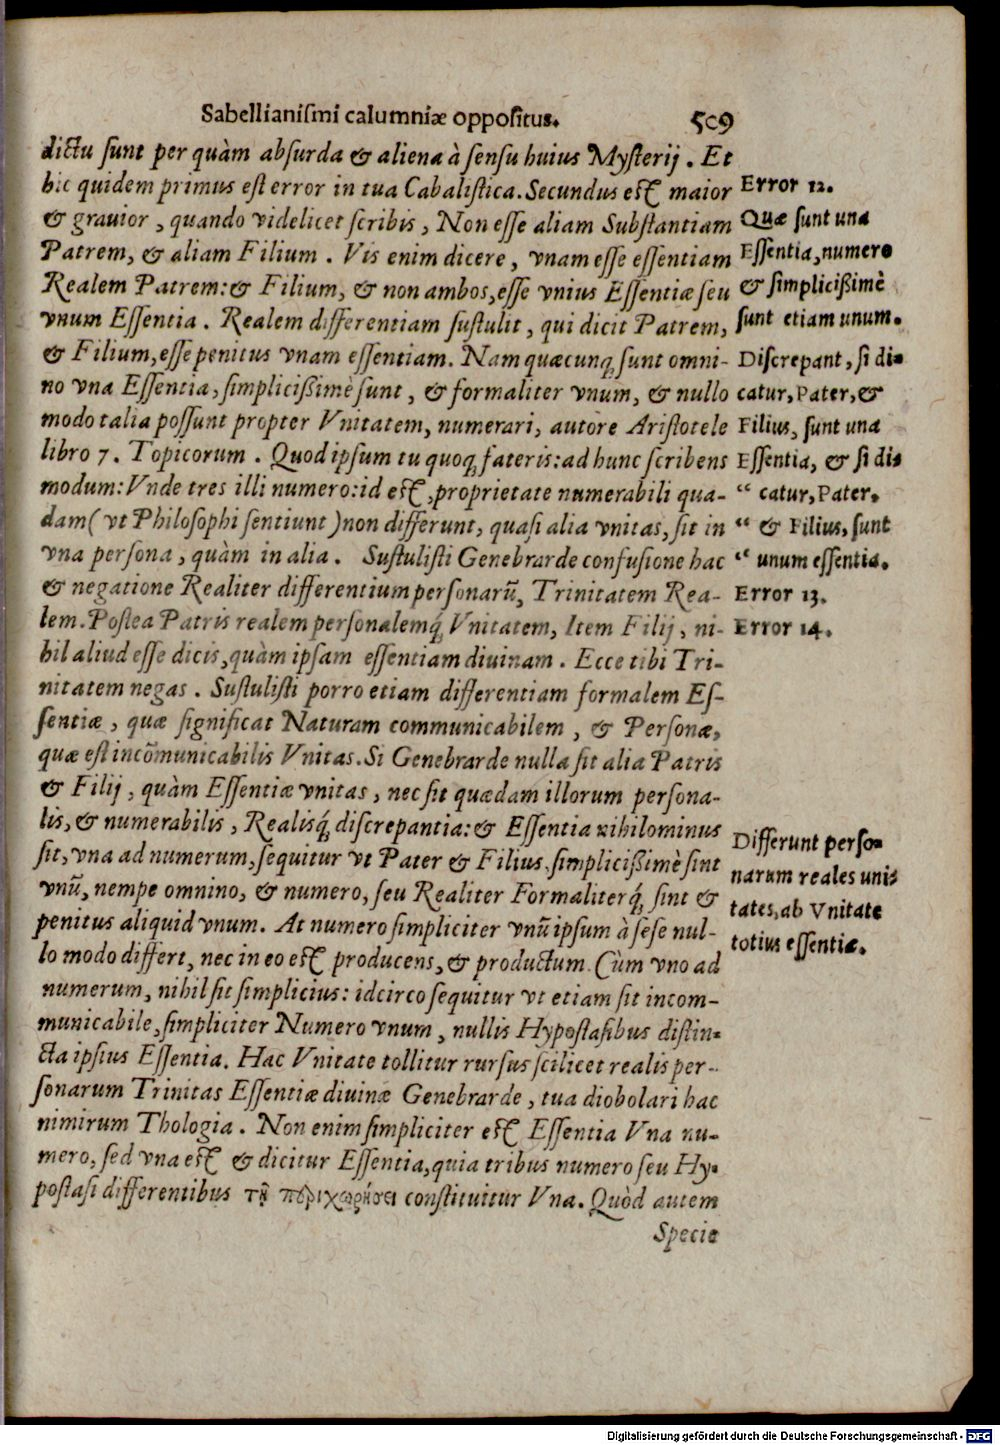 Sabellianiſmi calumniæ oppoſitus. 509
dictu ſunt per quàm abſurda & aliena à ſenſu huius Myſterij. Et
hic quidem primus eſt error in tua Cabaliſtica. Secundus eſt maior
& grauior, quando videlicet ſcribis, Non eſſe aliam Subſtantiam
Patrem, & aliam Filium. Vis enim dicere, vnam eſſe eſſentiam
Realem Patrem: & Filium, & non ambos, eſſe vnius Eſſentiæ ſeu
vnum Eſſentia. Realem differentiam ſuſtulit, qui dicit Patrem,
& Filium, eſſe penitus vnam eſſentiam. Nam quæcunq; ſunt omni-
no vna Eſſentia, ſimplicißimè ſunt, & formaliter vnum, & nullo
modo talia poſſunt propter Vnitatem, numerari, autore Ariſtotele
libro 7. Topicorum. Quod ipſum tu quoq; fateris: ad hunc ſcribens
modum: Vnde tres illi numero: id eſt, proprietate numerabili qua-
dam (vt Philoſophi ſentiunt) non differunt, quaſi alia vnitas, ſit in
vna perſona, quàm in alia. Suſtuliſti Genebrarde confuſione hac
& negatione Realiter differentium perſonarũ, Trinitatem Rea-
lem. Poſtea Patris realem perſonalemq́; Vnitatem, Item Filij, ni-
hil aliud eſſe dicis, quàm ipſam eſſentiam diuinam. Ecce tibi Tri-
nitatem negas. Suſtuliſti porro etiam differentiam formalem Eſ-
ſentiæ, quæ ſignificat Naturam communicabilem, & Perſonæ,
quæ eſt incõmunicabilis Vnitas. Si Genebrarde nulla ſit alia Patris
& Filij, quàm Eſſentiæ vnitas, nec ſit quædam illorum perſona-
lis, & numerabilis, Realisq́; diſcrepantia: & Eſſentia nihilominus
ſit, vna ad numerum, ſequitur vt Pater & Filius. ſimplicißimè ſint
vnũ, nempe omnino, & numero, ſeu Realiter Formaliterq́; ſint &
penitus aliquid vnum. At numero ſimpliciter vnũ ipſum à ſeſe nul-
lo modo differt, nec in eo eſt producens, & productum. Cùm vno ad
numerum, nihil ſit ſimplicius: idcirco ſequitur vt etiam ſit incom-
municabile, ſimpliciter Numero vnum, nullis Hypoſtaſibus diſtin-
cta ipſius Eſſentia. Hac Vnitate tollitur rurſus ſcilicet realis per-
ſonarum Trinitas Eſſentiæ diuinæ Genebrarde, tua diobolari hac
nimirum Thologia. Non enim ſimpliciter eſt Eſſentia Vna nu-
mero, ſed vna eſt & dicitur Eſſentia, quia tribus numero ſeu Hy-
poſtaſi differentibus τῇ περιχωρήσει conſtituitur Vna. Quòd autem
Specie
Error 12.
Quæ ſunt una
Eſſentia, numero
& ſimplicißimè
ſunt etiam unum.
Diſcrepant, ſi di-
catur, Pater, &
Filius, ſunt una
Eſſentia, & ſi di-
“ catur, Pater.
“ & Filius, ſunt
“ unum eſſentia.
Error 13.
Error 14.
Differunt perſo-
narum reales uni-
tates, ab Vnitate
totius eſſentiæ.
Digitalisierung gefördert durch die Deutsche Forschungsgemeinschaft - DFG